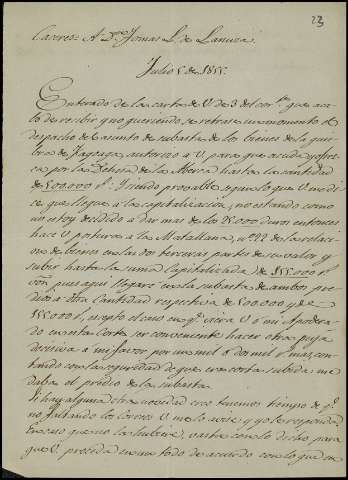 23
Caceres: A Dn. Tomas L. de Lanuza.
Julio 5 de 1855.
Enterado de la carta de V. de 3 del corrte. que aca-
bo de recibir y no queriendo se retrase un momento el
despacho del asunto de subasta de los bienes de la quie-
bra de autorizo a V. para que acuda y ofrez-
ca por la Dehesa de la hasta la cantidad
de 500.000 rs. Y siendo provable segun lo que V. me di-
ce que llegue a la capitalizacion, no estando como
no estoy decidido a dar mas de los 25.000 duros entonces
hace V. postura a la Matallana, nº 22 de la relacio-
n de bienes en las dos terceras partes de su valor y
sube hasta la suma Capitalizada de 155.000 rs.
von. pues aqui llegaré en la subasta de ambos pre-
dios a otra Cantidad respectiva de 500.000 y de
155.000 rs. ecepto el caso en q. crea V. ó mi Apodera-
do en esta Corte ser conveniente hacer otra puja
decisiva a mi favor por un mil o dos mil rs. mas, con-
tando con la seguridad de que con corta subida, me
daba el predio de la subasta.
Si hay alguna otra novedad creo tenemos tiempo de q.
no faltando los correos V. me lo avise y yo le responda.
En caso que no la hubiere, vasta con lo dicho para
que V. proceda en un todo de acuerdo con lo que en